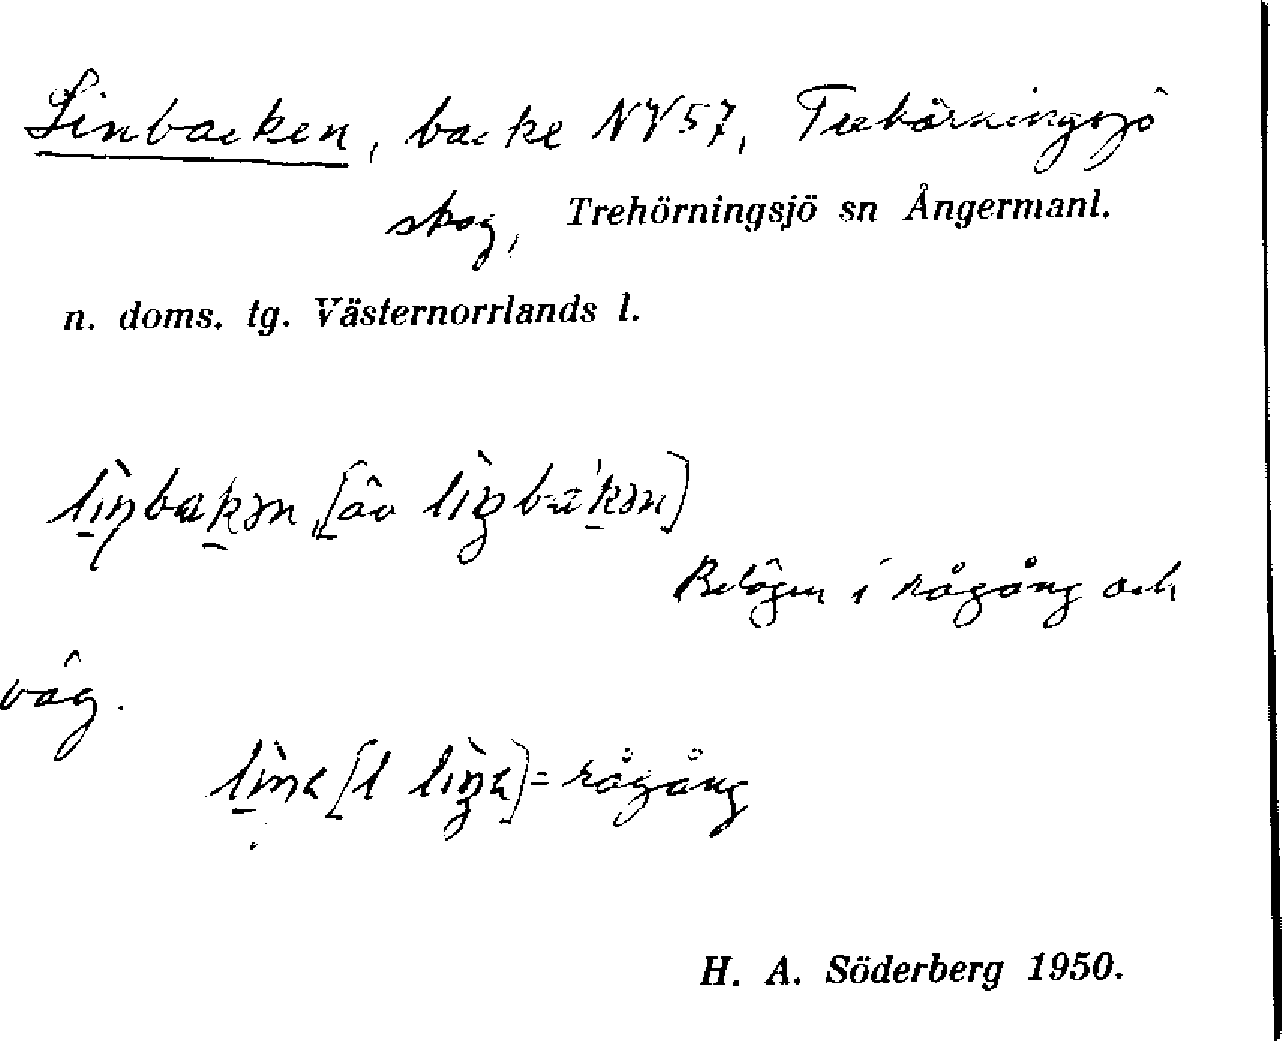 Linbacken, backe NV 57, Trehörningsjö
skog, Trehörningsjö sn Ångermanl.
n. doms. tg. Västernorrlands l.
[äv
Belägen i rågång och
väg.
= rågång
H. A. Söderberg 1950.